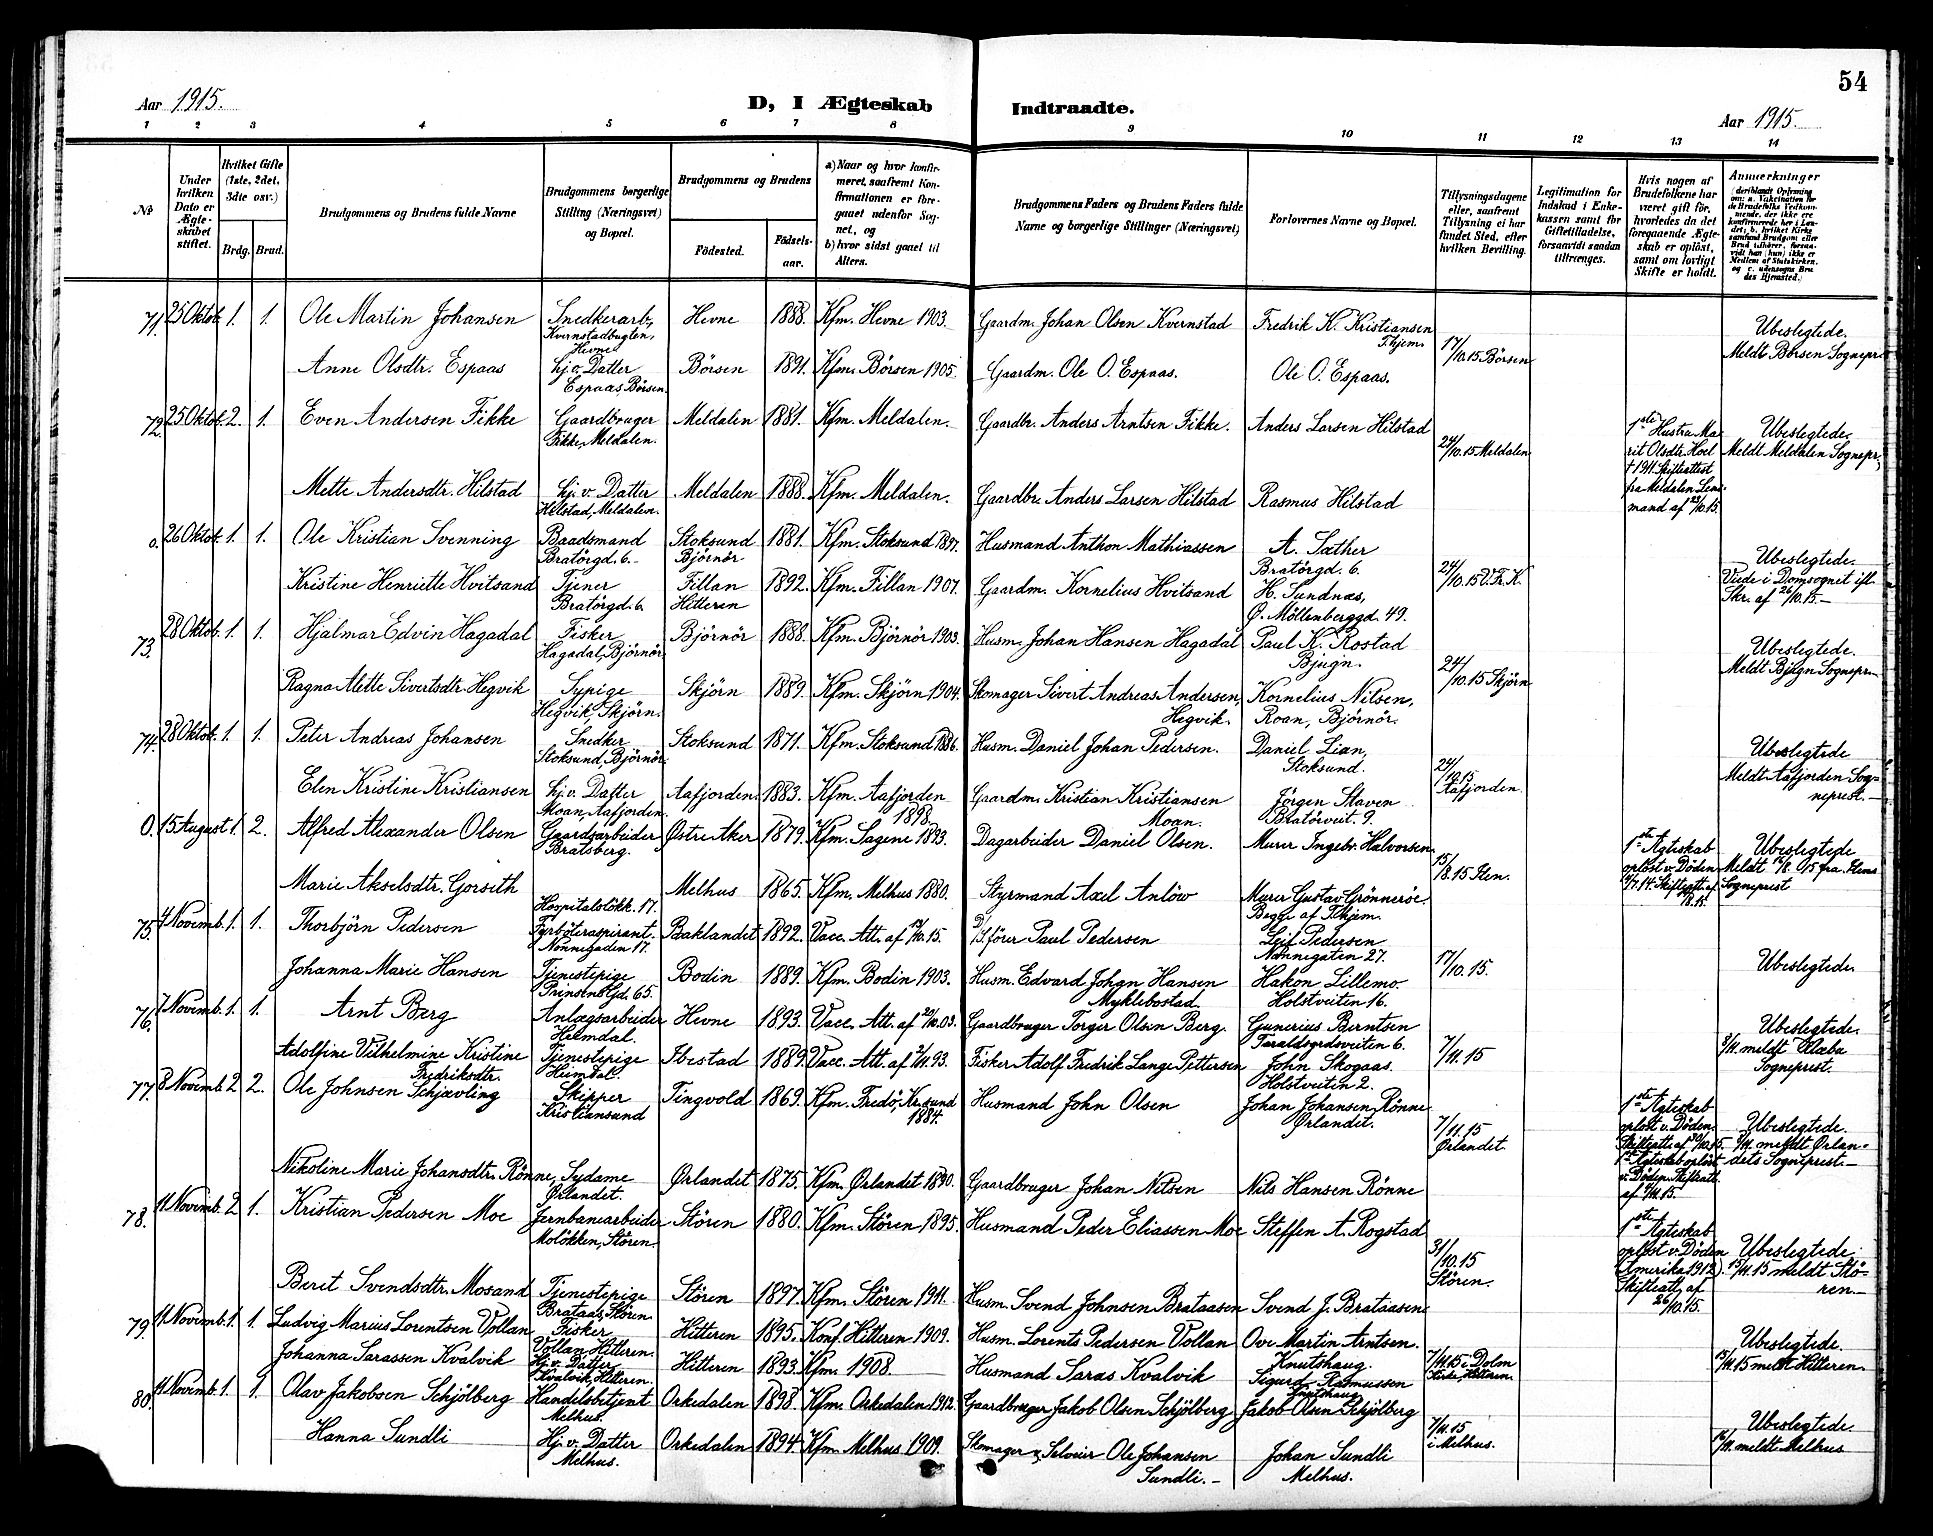 54
Aar 1915.
D, I Ægteskab
Indtraadte.
Aar 1915.
1 2 3 4 5 6 7 8 9 10 11 12 13 14
№
Under hvilken Dato er Ægteskabet stiftet.
Hvilket Gifte (1ste, 2det, 3dte osv.)
Brdg. Brud.
Brudgommens og Brudens fulde Navne
Brudgommens borgerlige Stilling (Næringsvei) og Bopæl.
Brudgommens og Brudens
Födested.
Födselsaar.
a) Naar og hvor konfirmeret, saafremt Konfirmationen er foregaaet udenfor Sognet, og
b) hvor sidst gaaet til Alters.
Brudgommens Faders og Brudens Faders fulde Navne og borgerlige Stillinger (Næringsvei)
Forlovernes Navne og Bopæl.
Tillysningsdagene eller, saafremt Tillysning ei har fundet Sted, efter hvilken Bevilling.
Legitimation for Indskud i Enkekassen samt for Giftetilladelse, forsaavidt saadan tiltrænges.
Hvis nogen af Brudefolkene har været gift för, hvorledes da det foregaaende Ægteskab er oplöst, samt om lovligt Skifte er holdt.
Anmærkninger
71. 25 Oktob. 1. 1. Ole Martin Johansen Snedkerarb, Kvernstadbugten, Hevne Hevne 1888. Kfm. Hevne 1903. Gaardm. Johan Olsen Kvernstad Fredrik K. Kristiansen Thjem. 17/10.15 Börsen Ubeslegtede. Meldt Börsen Sognepr.
Anne Olsdtr. Espaas hj. v. Datter Espaas, Börsen. Börsen 1891. Kfm. Börsen 1905. Gaardm. Ole O. Espaas. Ole O. Espaas.
72. 25 Oktob. 2. 1. Even Andersen Fikke Gaardbruger Fikke, Meldalen. Meldalen 1881. Kfm. Meldalen. Gaardbr. Anders Arntsen Fikke. Anders Larsen Hilstad 24/10.15 Meldalen 1ste Hustru Marit Olsdtr. Hoel † 1911. Skifteattest fra Meldalen Lensmand af 23/10.15. Ubeslegtede. Meldt Meldalen Sognepr.
Mette Andersdtr. Hilstad hj. v. Datter Hilstad, Meldalen. Meldalen 1888. Kfm. Meldalen. Gaardbr. Anders Larsen Hilstad Rasmus Hilstad
0. 26 Oktob. 1. 1. Ole Kristian Svenning Baadsmand Bratörgd. 6. Stoksund Björnör 1881. Kfm. Stoksund 1897. Husmand Anthon Mathiassen A. Sæther Bratörgd. 6. 24/10.15 V. Fr. K. Ubeslegtede. Viede i Domsognet ifl. Skr. af 26/10.15.
Kristine Henriette Hvitsand Tjener Bratörgd. 6. Fillan Hitteren 1892. Kfm. Fillan 1907. Gaardm. Kornelius Hvitsand H. Sundnæs, Ø. Möllenberggd. 49.
73. 28 Oktob. 1. 1. Hjalmar Edvin Hagadal Fisker Hagadal, Björnör Björnör 1888. Kfm. Björnör 1903. Husm. Johan Hansen Hagadal Paul K. Rostad Bjugn. 24/10.15 Skjörn Ubeslegtede. Meldt Bjugn Sognepr.
Ragna Mette Sivertsdtr. Hegvik Sypige Hegvik, Skjörn. Skjörn 1889. Kfm. Skjörn 1904. Skomager Sivert Andreas Andersen, Hegvik. Kornelius Nilsen, Roan, Björnör.
74. 28 Oktob. 1. 1. Peter Andreas Johansen Snedker Stoksund, Björnör Stoksund 1871. Kfm. Stoksund 1886. Husm. Daniel Johan Pedersen. Daniel Lian, Stoksund. 24/10.15 Aafjorden. Ubeslegtede Meldt Aafjorden Sogneprest.
Elen Kristine Kristiansen hj. v. Datter Moan, Aafjorden. Aafjorden 1883. Kfm. Aafjorden 1898. Gaardm. Kristian Kristiansen Moan. Jörgen Staven Bratörveit. 9.
0. 15 August 1. 2. Alfred Alexander Olsen Gaardsarbeider Bratsberg. Østre Aker 1879. Kfm. Sagene 1893. Dagarbeider Daniel Olsen. Murer Ingebr. Halvorsen. 15/8.15 Ilen. 1ste Ægteskab oplöst v. Döden Skifteatt. af Ubeslegtede Meldt fra Ilens Sogneprest
Marie Akselsdtr. Gorseth Hospitalslökk. 17. Melhus 1865. Kfm. Melhus 1880. Styrmand Axel Anlöw Murer Gustav Grönneröe. Begge af Thjem.
75. 4 Novemb. 1. 1. Thorbjörn Pedersen Fyrböteraspirant. Nonnegaden 17. Baklandet 1892. Vacc. Att. af 14/10.15. förer Paul Pedersen Leif Pedersen Nonnegaten 27. 17/10.15. Ubeslegtede.
Johanna Marie Hansen Tjenestepige Prinsens Gd. 65. Bodin 1889. Kfm. Bodin 1903. Husm. Edvard Johan Hansen Myklebostad. Hakon Lillemo. Holstveiten 16.
76. 7 Novemb. 1. 1. Arnt Berg Anlægsarbeider Heimdal. Hevne 1893. Vacc. Att. af Gaardbruger Torger Olsen Berg. Gunerius Berntsen Taraldsgrdsveiten 6. 7/11.15 Ubeslegtede. meldt Klæbu Sogneprest.
Adolfine Vilhelmine Kristine Fredriksdtr. Tjenestepige Heimdal. Ibestad 1889. Vacc. Att. af Fisker Adolf Fredrik Lange Pettersen John Skogaas. Holstveiten 2.
77. 8 Novemb. 2 2. Ole Johnsen Schjævling Skipper Kristiansund Tingvold 1869. Kfm. Fredö, Kr.sund 1884. Husmand John Olsen Johan Johansen Rönne Ørlandet. 7/11.15 Ørlandet. 1ste Ægteskab oplöst v. Döden. Skifteatt. af 30/10.15. 1ste Ægteskab oplöst v. Döden. Skifteatt. af Ubeslegtede. meldt Ørlandets Sogneprest.
Nikoline Marie Johansdtr. Rönne, Sydame Ørlandet. Ørlandet 1875. Kfm. Ørlandet 1890. Gaardbruger Johan Nilsen Nils Hansen Rönne
78. 11 Novemb. 2 1. Kristian Pedersen Moe Jernbanearbeider Molökken, Stören. Stören 1880. Kfm. Stören 1895. Husmand Peder Eliassen Moe Steffen A. Rogstad 31/10.15 Stören. 1ste Ægteskab oplöst v. Döden (Amerika 1912). Skifteatt. af 26/10.15. Ubeslegtede. 15/11.15 meldt Stören.
Berit Svendsdtr. Mosand Tjenestepige Brataas, Stören. Stören 1897. Kfm. Stören 1911. Husm. Svend Johnsen Brataasen Svend J. Brataasen
79. 11 Novemb. 1. 1. Ludvig Marius Lorentsen Vollan Fisker Vollan Hitteren. Hitteren 1895. Konf. Hitteren 1909. Husm. Lorents Pedersen Vollan Ove Martin Arntsen. Knutshaug. 7/11.15 i Dolm Kirke, Hitteren. Ubeslegtede. 15/11.15 meldt Hitteren.
Johanna Sarassen Kvalvik Hj. v. Datter Kvalvik, Hitteren. Hitteren 1893. Kfm. 1908. Husmand Saras Kvalvik Sigurd Rasmussen Knutshaug
80. 11 Novemb. 1. 1. Olav Jakobsen Schjölberg Handelsbetjent Melhus. Orkedalen 1898. Kfm. Orkedalen 1912. Gaardbruger Jakob Olsen Schjölberg Jakob Olsen Schjölberg 7/11.15 i Melhus. Ubeslegtede. meldt Melhus
Hanna Sundli Hj. v. Datter Melhus. Orkedalen 1894. Kfm. Melhus 1909. Skomager & Selveier Ole Johansen Sundli. Johan Sundli Melhus.